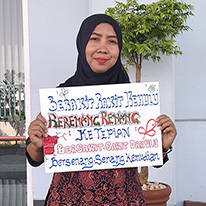 Berakit Rakit Kehulu
Berenang Renang
Ketepian
Bersakit-Sakit Dahulu
Bersenang Senang Kemudian